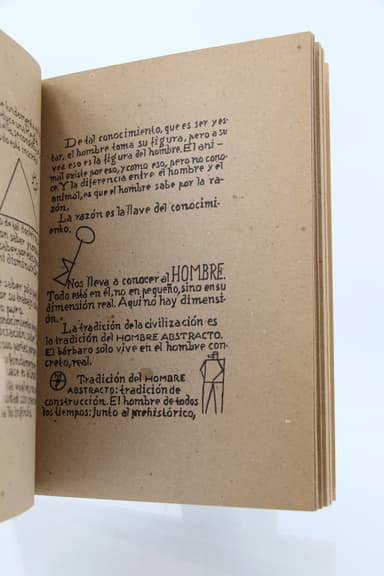 De tal conocimiento, que es ser y es-
tar, el hombre toma su figura, pero a su
vez eso es la figura del hombre. El ani-
mal existe por eso, y como eso, pero no cono-
ce. Y la diferencia entre el hombre y el
animal, es que el hombre sabe por la ra-
zón.
La razón es la llave del conocimi-
ento.
Nos lleva a conocer al HOMBRE.
Todo está en él, no en pequeño, sino en su
dimensión real. Aquí no hay dimensi-
ón.
La tradición de la civilización es
la tradición del HOMBRE ABSTRACTO.
El bárbaro solo vive en el hombre con-
creto, real.
Tradición del HOMBRE
ABSTRACTO: tradición de
construcción. El hombre de todos
los tiempos: junto al prehistórico,